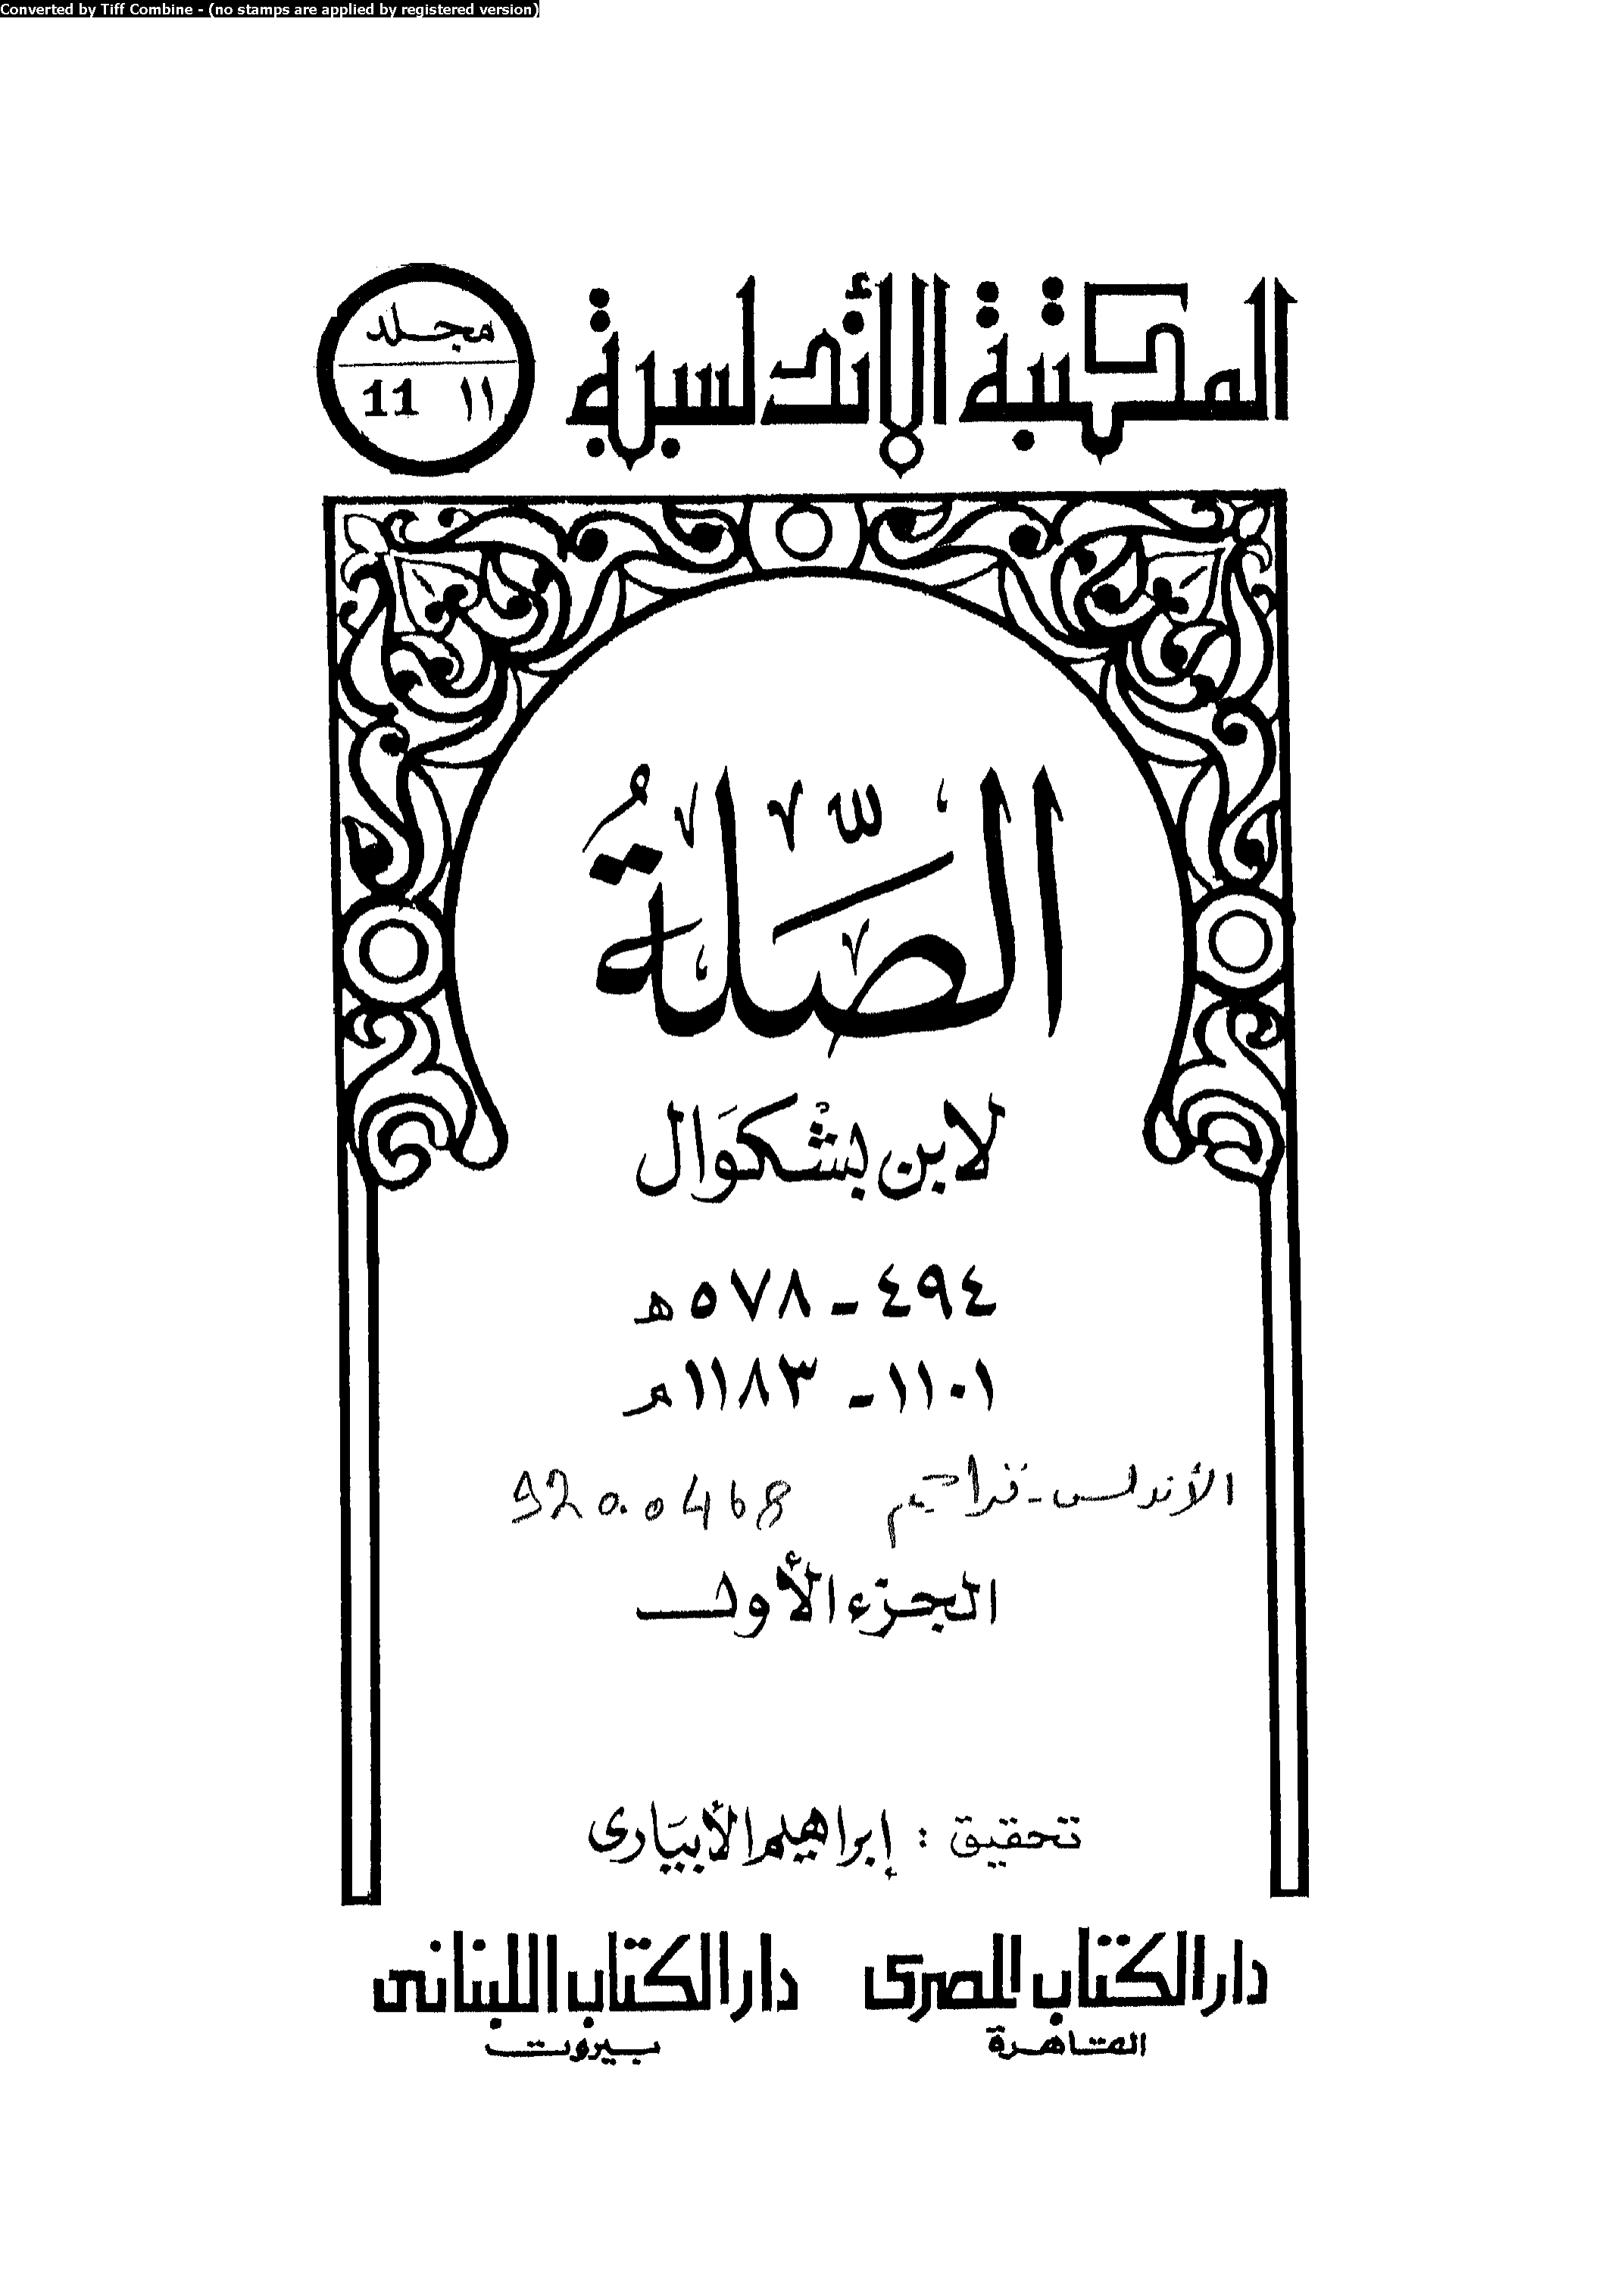 Converted by Tiff Combine - (no stamps are applied by registered version)
المكتبة الأندلسية
مجلد
١١ 11
الصِّلَةُ
لابن بشْكوَال
٤٩٤ - ٥٧٨ ه
١١٠١ - ١١٨٣ م
الأندلس - تراجم 920.0468
الجزء الأول
تحقيق : إبراهيم الأبيَارى
دار الكتاب المصرى دار الكتاب اللبنانى
القاهرة بيروت